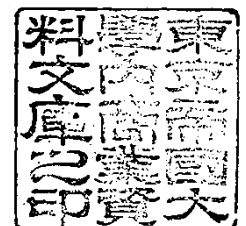 東京帝國大
學内商業資
料文庫之印